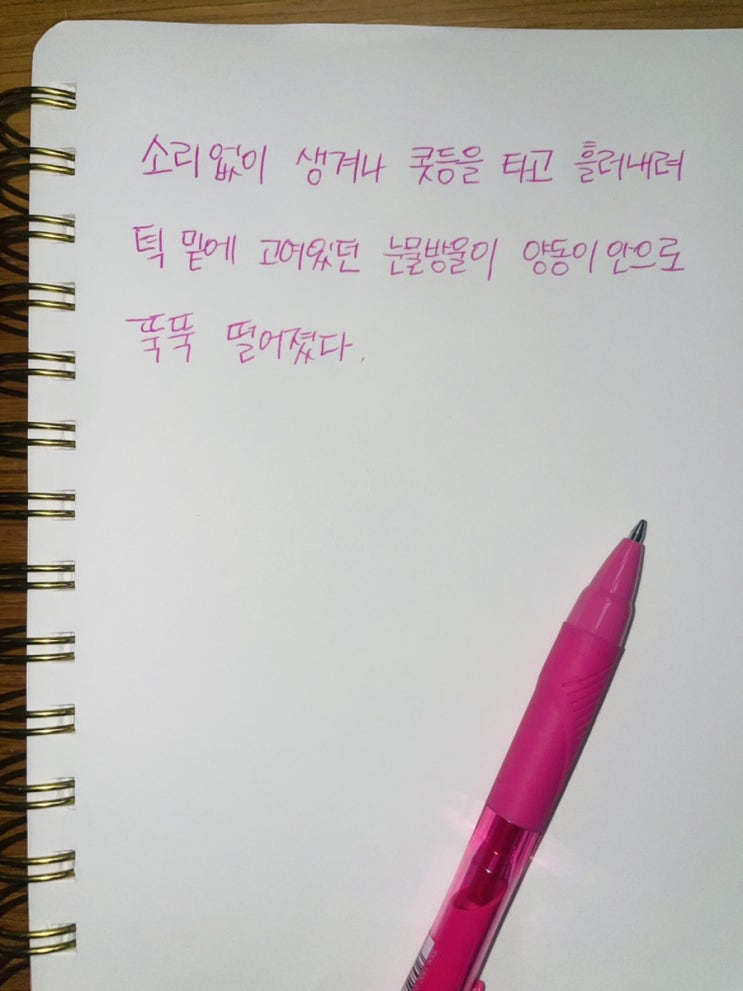 소리없이 생겨나 콧등을 타고 흘러내려
턱 밑에 고여있던 눈물방울이 양동이 안으로
뚝뚝 떨어졌다.